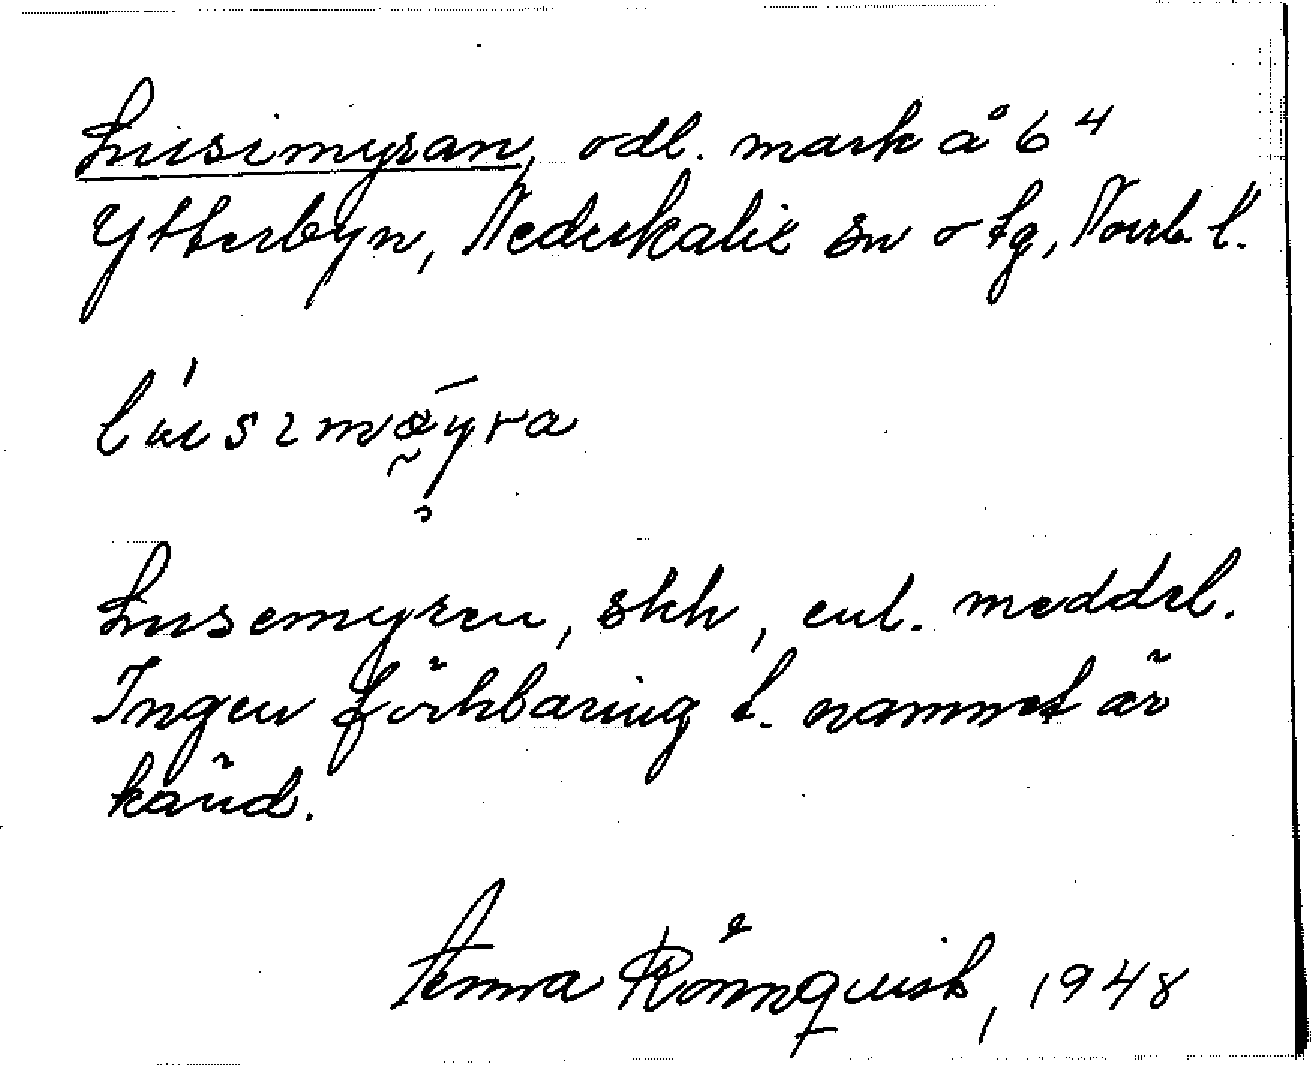 Lusimyran, odl. mark å 6⁴
Ytterbyn, Nederkalix sn o tg, Norrb. l.
Lusemyren, skh, enl. meddel.
Ingen förklaring t. namnet är
känd.
Anna Rönnquist, 1948